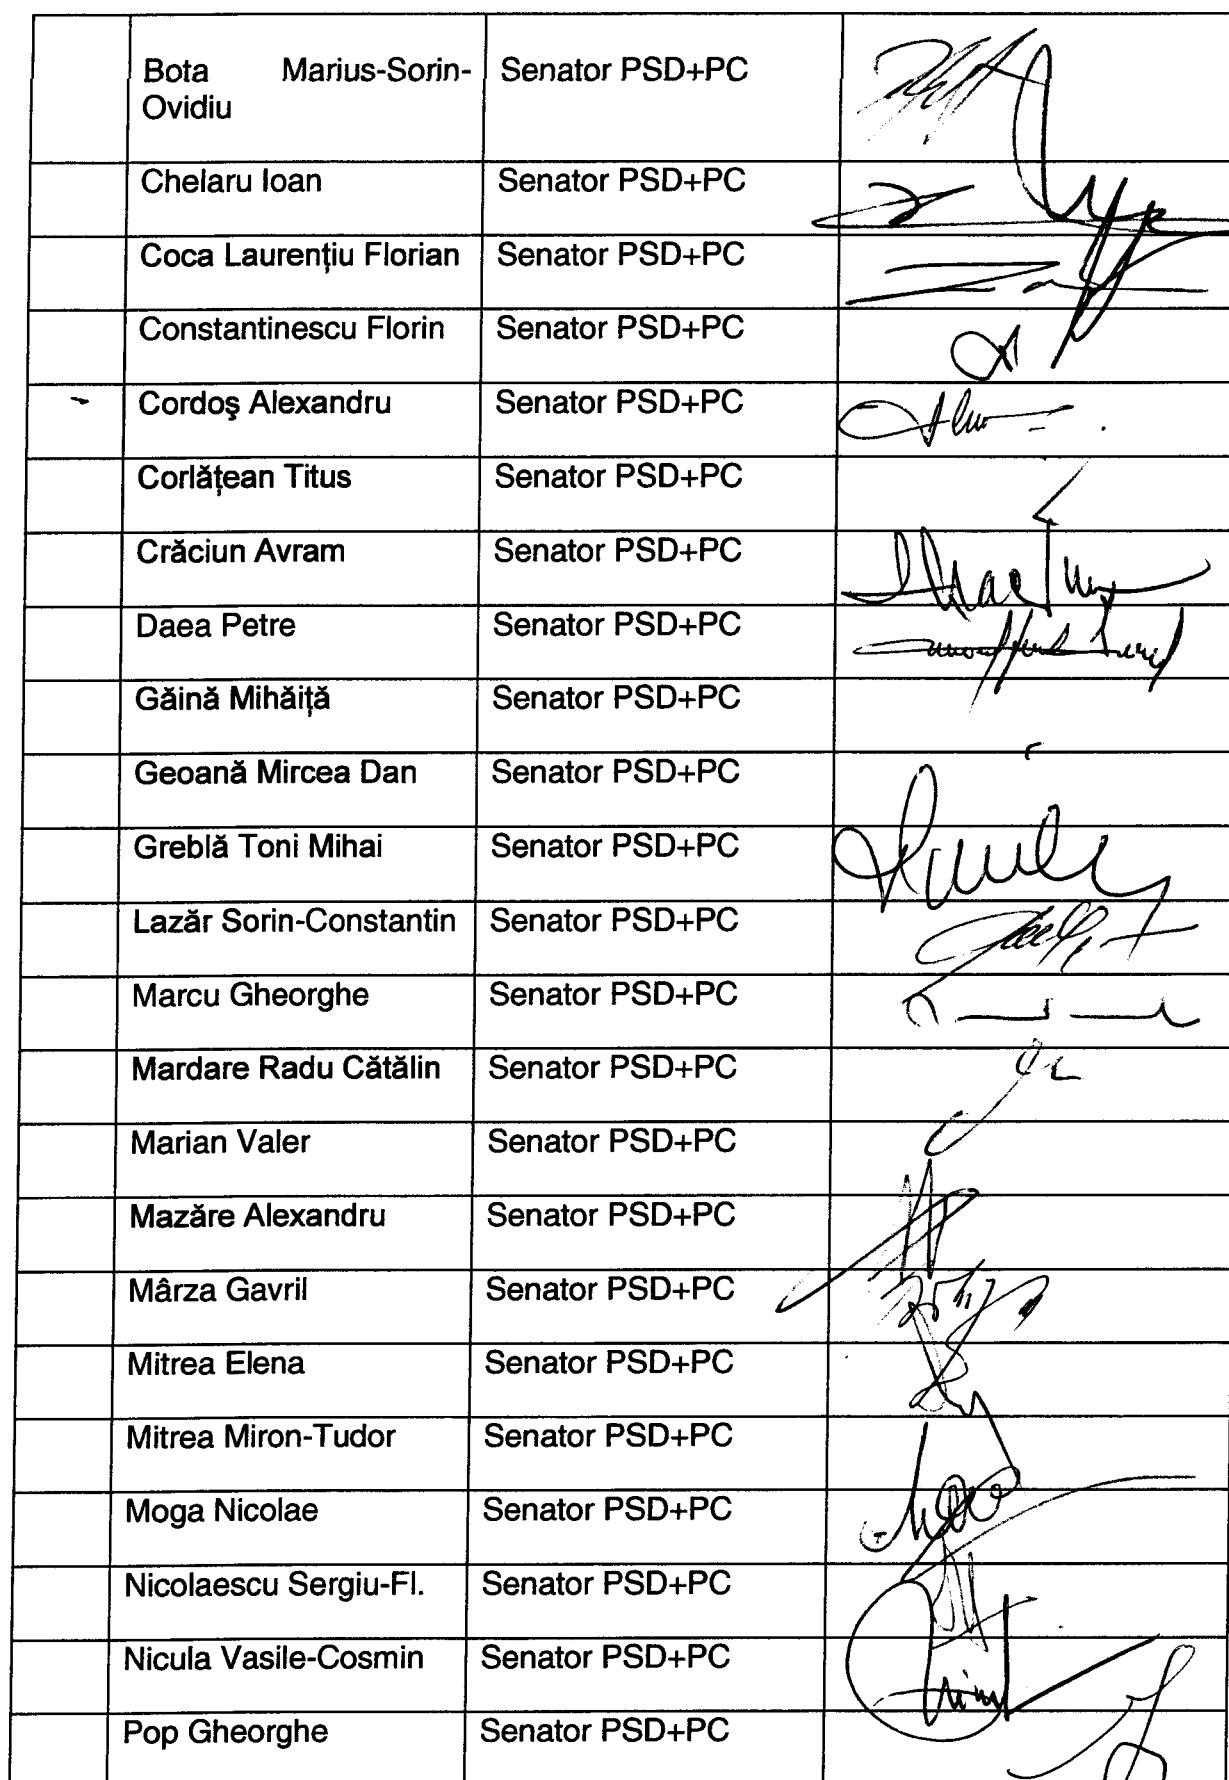 Bota Marius-Sorin- Senator PSD+PC
Ovidiu
Chelaru Ioan Senator PSD+PC
Coca Laurenţiu Florian Senator PSD+PC
Constantinescu Florin Senator PSD+PC
Cordoş Alexandru Senator PSD+PC
Corlăţean Titus Senator PSD+PC
Crăciun Avram Senator PSD+PC
Daea Petre Senator PSD+PC
Găină Mihăiţă Senator PSD+PC
Geoană Mircea Dan Senator PSD+PC
Greblă Toni Mihai Senator PSD+PC
Lazăr Sorin-Constantin Senator PSD+PC
Marcu Gheorghe Senator PSD+PC
Mardare Radu Cătălin Senator PSD+PC
Marian Valer Senator PSD+PC
Mazăre Alexandru Senator PSD+PC
Mârza Gavril Senator PSD+PC
Mitrea Elena Senator PSD+PC
Mitrea Miron-Tudor Senator PSD+PC
Moga Nicolae Senator PSD+PC
Nicolaescu Sergiu-Fl. Senator PSD+PC
Nicula Vasile-Cosmin Senator PSD+PC
Pop Gheorghe Senator PSD+PC